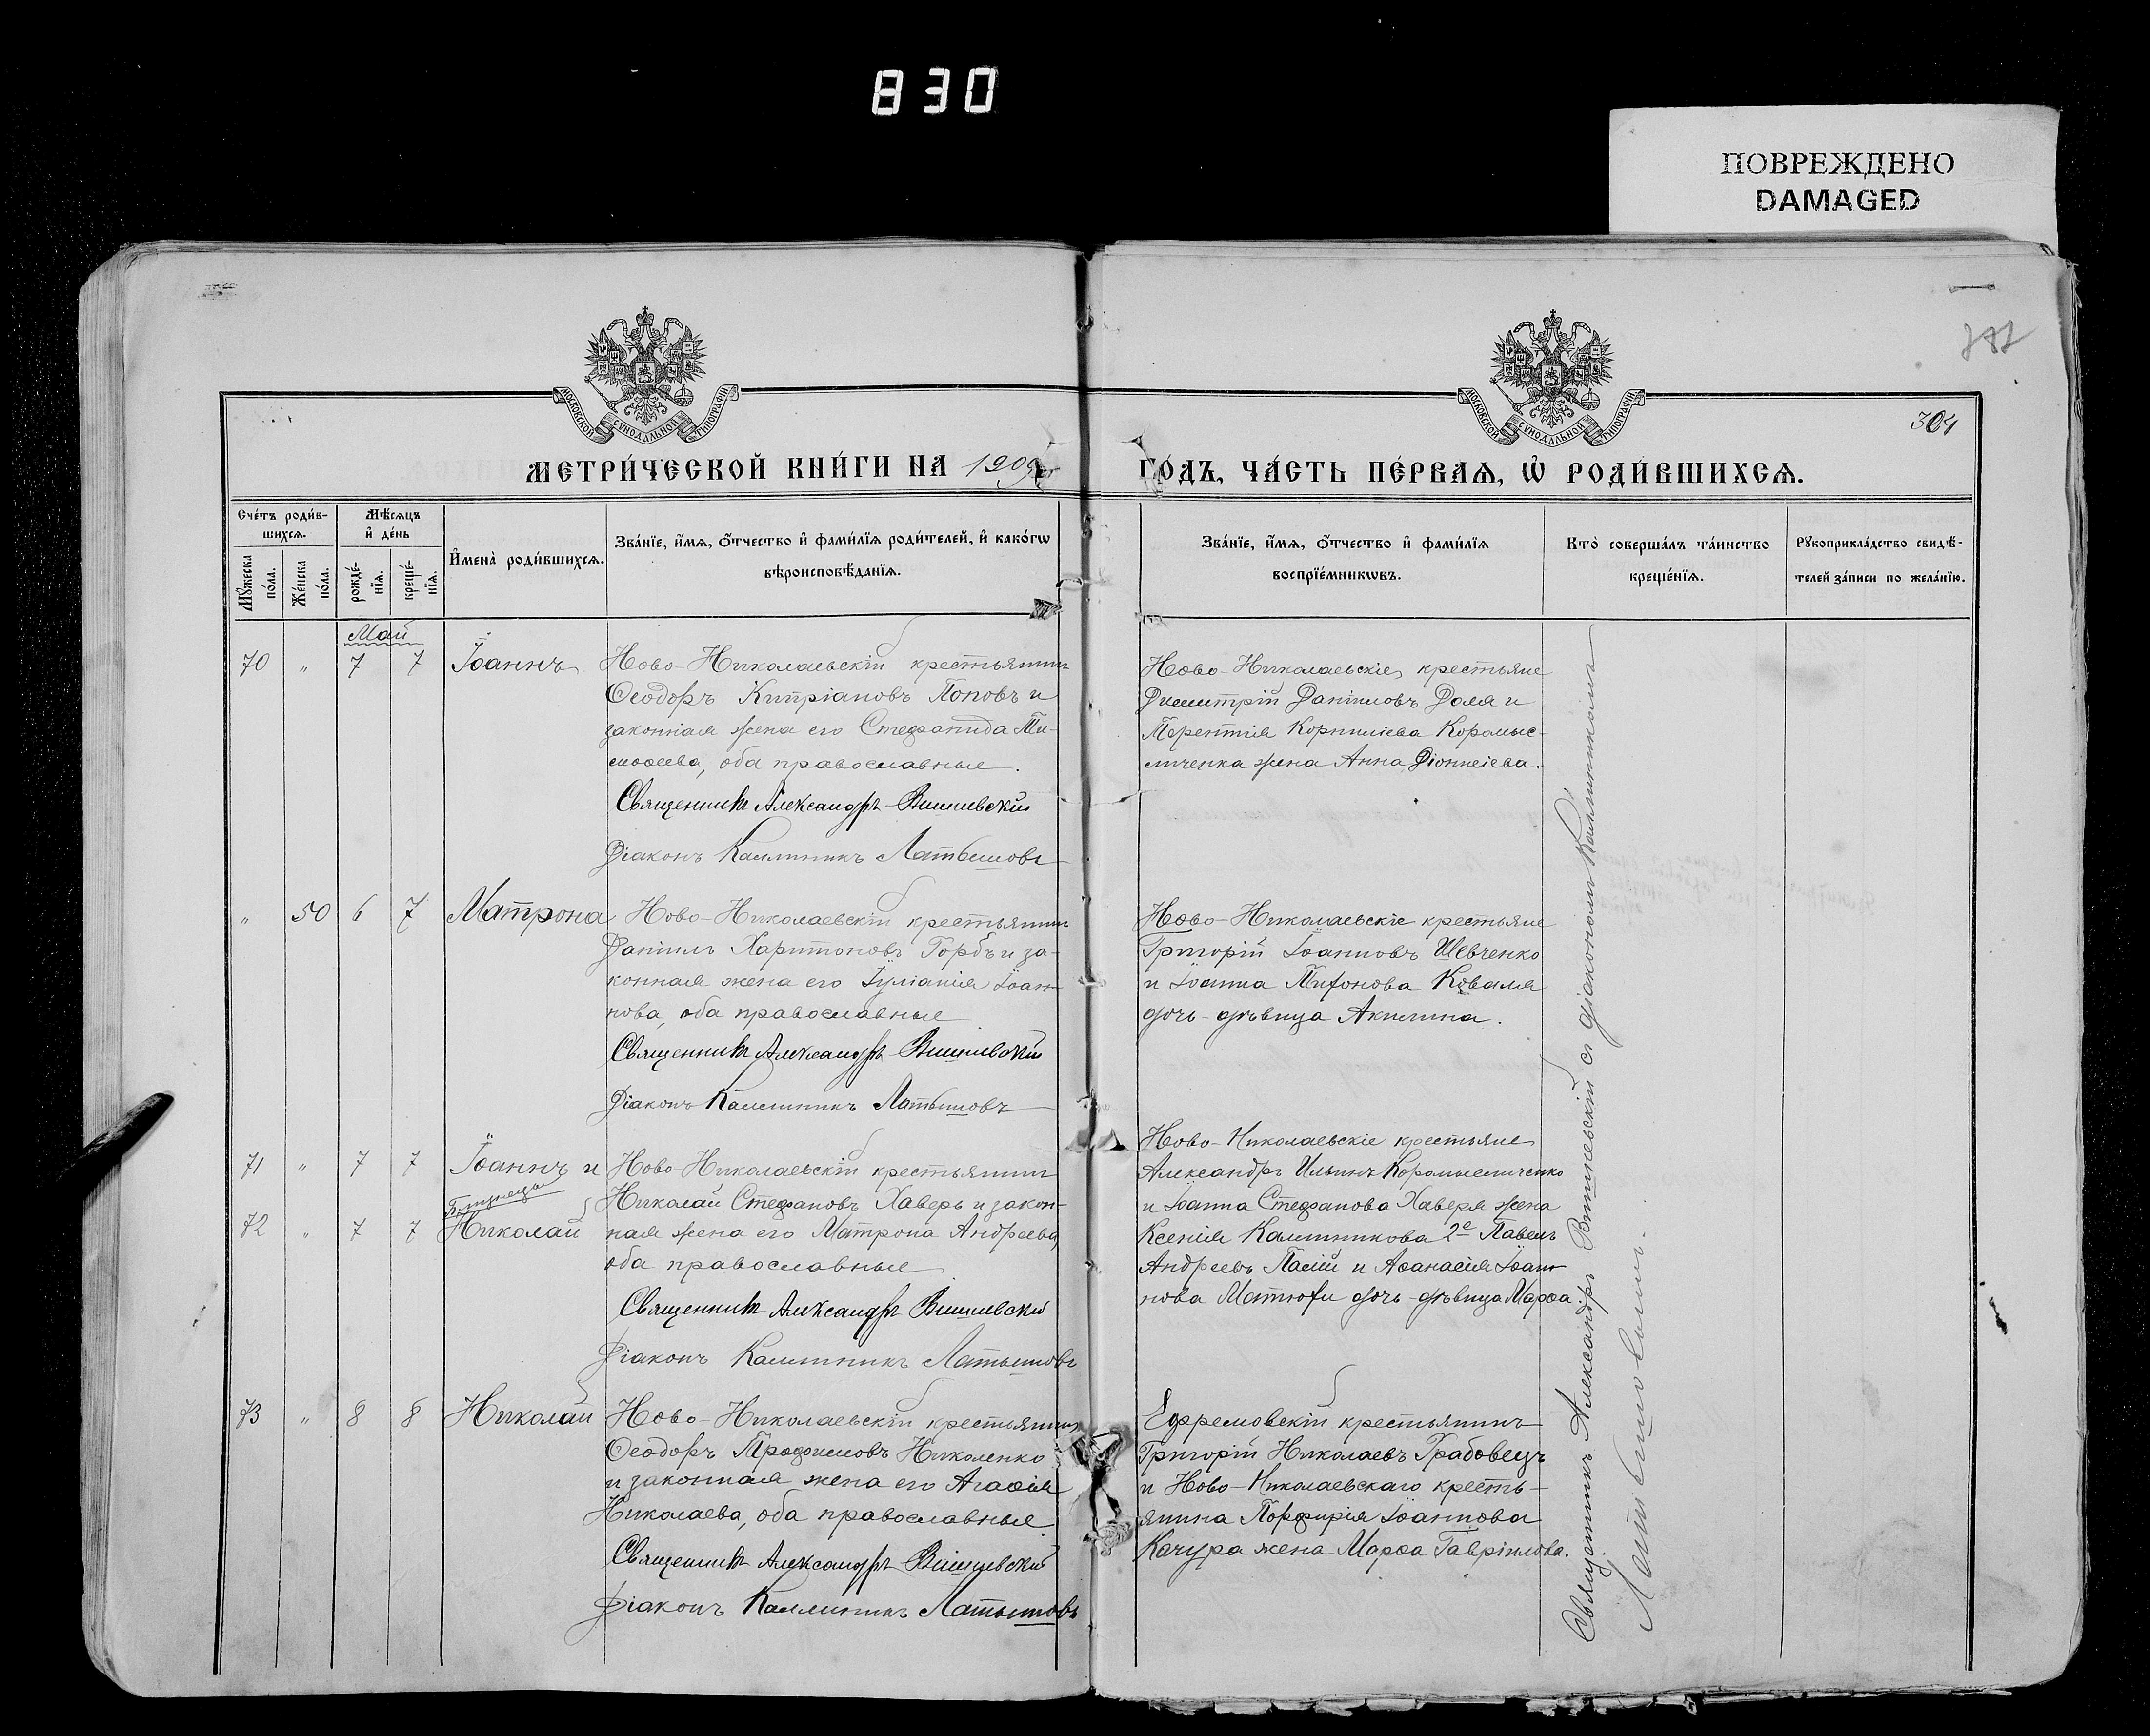 830
ПОВРЕЖДЕНО
DAMAGED
304
МОСКОВСКОЙ СѴНОДАЛЬНОЙ ТИПОГРАФІИ
МОСКОВСКОЙ СѴНОДАЛЬНОЙ ТИПОГРАФІИ
МЕТРИ́ЧЕСКОЙ КНИ́ГИ НА 1909
ГО́ДЪ, ЧА́СТЬ ПЕ́РВАѦ, Ѡ҆ РОДИ́ВШИХСѦ.
Сче́тъ роди́в-
шихсѧ.
Мꙋ́жеска по́ла.
Же́нска по́ла.
Мѣ́сѧцъ
и҆ де́нь
рожде́-
нїѧ.
креще́-
нїѧ.
И҆мена̀ роди́вшихсѧ.
Зва́нїе, и҆́мѧ, ѻ҆́тчество и҆ фами́лїѧ роди́телей, и҆ како́гѡ
вѣроисповѣ́данїѧ.
Зва́нїе, и҆́мѧ, ѻ҆́тчество и҆ фами́лїѧ
воспрїе́мникѡвъ.
Кто̀ соверша́лъ та́инство
креще́нїѧ.
Рꙋкоприкла́дство свидѣ́-
телей за́писи по жела́нїю.
Май
70 " 7 7 Іоаннъ
Ново-Николаевскій крестьянинъ
Ѳеодоръ Кипріановъ Поповъ и
законная жена его Стефанида Ти-
моѳеева, оба православные.
Священникъ Александръ Вишневскій
Діаконъ Каллиникъ Латышовъ
Ново-Николаевскіе крестьяне
Димитрій Даніиловъ Доля и
Терентія Корниліева Коромыс-
личенка жена Анна Діонисіева.
" 50 6 7 Матрона
Ново-Николаевскій крестьянинъ
Даніилъ Харитоновъ Горбъ и за-
конная жена его Іуліанія Іоан-
нова, оба православные
Священникъ Александръ Вишневскій
Діаконъ Каллиникъ Латышовъ
Ново-Николаевскіе крестьяне
Григорій Іоанновъ Шевченко
и Іоанна Тифонова Коваля
дочь-дѣвица Акилина.
71 " 7 7 Іоаннъ и
Близнецы
72 " 7 7 Николай
Ново-Николаевскій крестьянинъ
Николай Стефановъ Хаверь и закон-
ная жена его Матрона Андреева,
оба православные
Священникъ Александръ Вишневскій
Діаконъ Каллиникъ Латышовъ
Ново-Николаевскіе крестьяне
Александръ Ильинъ Коромысличенко
и Іоанна Стефанова Хаверя жена
Ксенія Каллиникова 2е Павелъ
Андреевъ Палій и Аѳанасія Іоан-
нова Матюхи дочь-дѣвица Марѳа.
73 " 8 8 Николай
Ново-Николаевскій крестьянинъ
Ѳеодоръ Трофимовъ Николенко
и законная жена его Агаѳія
Николаева, оба православные.
Священникъ Александръ Вишневскій
Діаконъ Каллиникъ Латышовъ
Ефремовскій крестьянинъ
Григорій Николаевъ Храбовецъ
и Ново-Николаевскаго кресть-
янина Порфирія Іоаннова
Качура жена Марѳа Гавріилова.
Священникъ Александръ Вишневскій съ діакономъ Каллиникомъ
Латышовымъ.